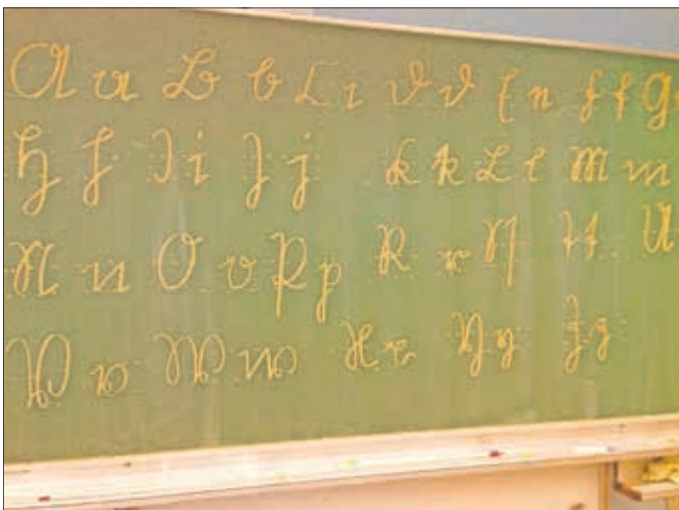 A a B b C c D d E e F f G
H h I i J j K k L l M m
N n O o P p R r S s T t U
V v W w X x Y y Z z